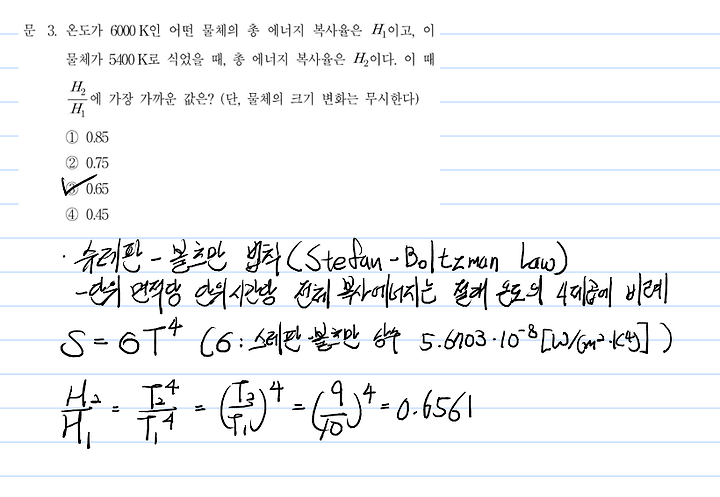 문 3. 온도가 6000 K인 어떤 물체의 총 에너지 복사율은 H₁이고, 이
물체가 5400 K로 식었을 때, 총 에너지 복사율은 H₂이다. 이 때
H₂/H₁에 가장 가까운 값은? (단, 물체의 크기 변화는 무시한다)
① 0.85
② 0.75
③ 0.65
④ 0.45
· 슈테판 - 볼츠만 법칙 (Stefan - Boltzman Law)
- 단위 면적당 단위시간당 전체 복사에너지는 절대 온도의 4제곱에 비례
S = σT⁴ (σ : 스테판 볼츠만 상수 5.6703·10⁻⁸[W/(m²·K⁴)])
H₂/H₁ = T₂⁴/T₁⁴ = (T₃/T₁)⁴ = (9/10)⁴ = 0.6561